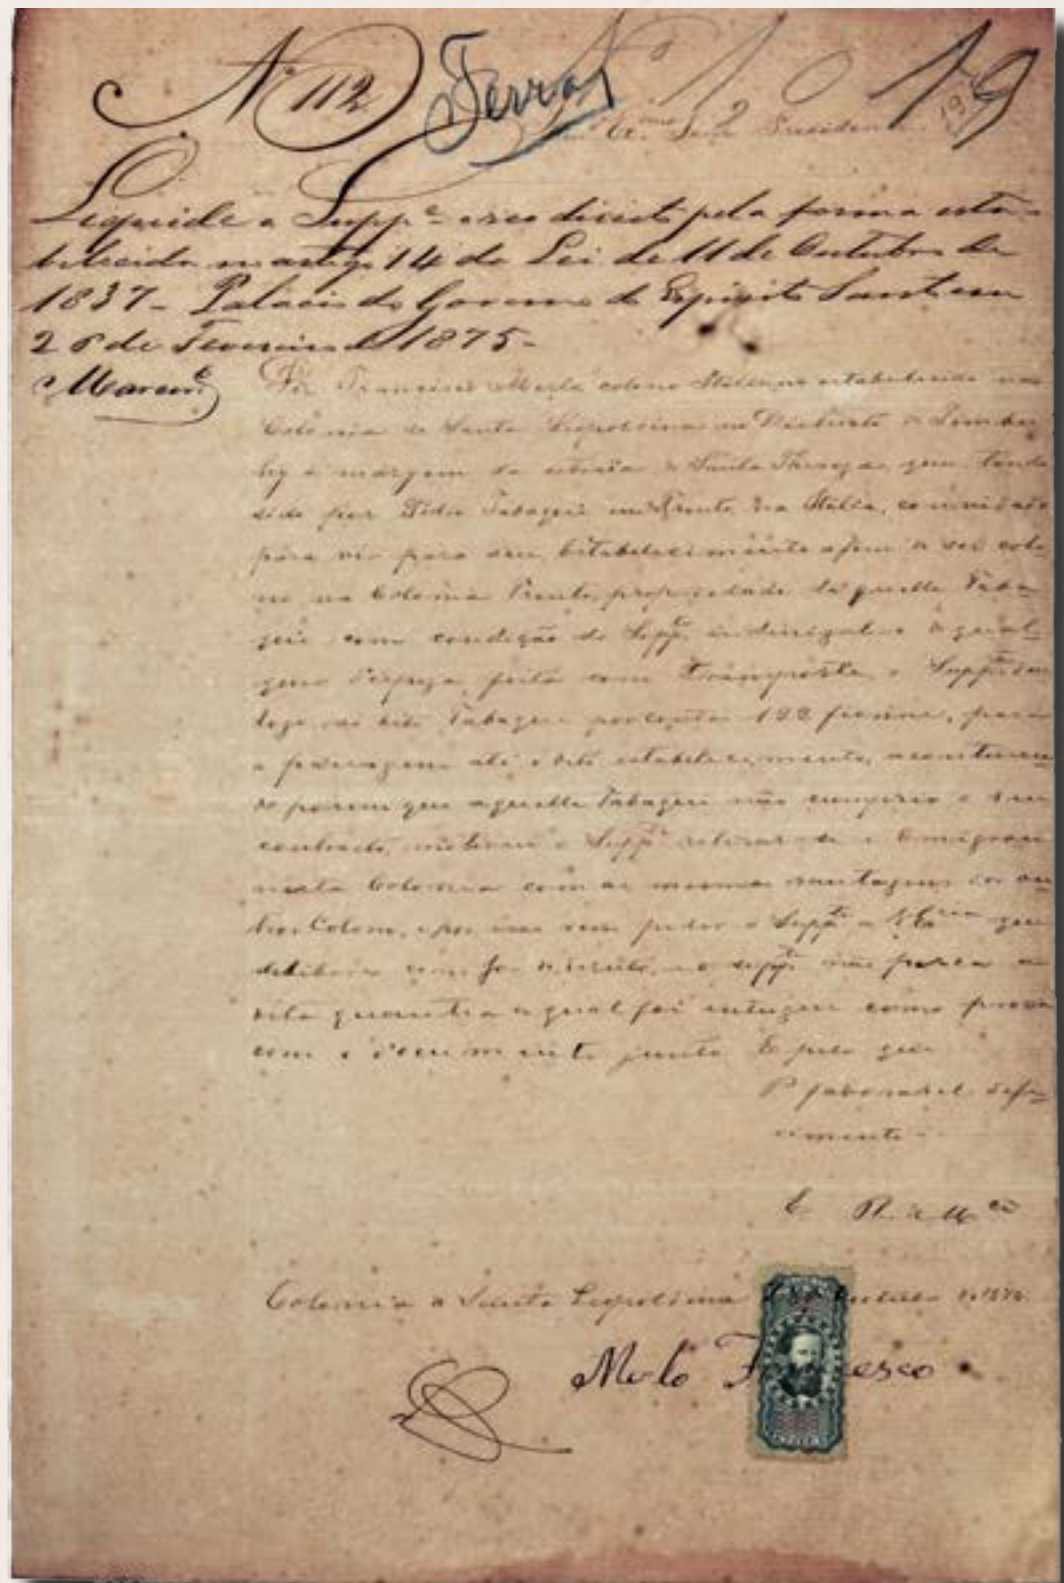 Nº 112 Terras Nº 1 0 19
Exmo Senr Presidente
Liquide o Suppe o seo direito pela forma esta-
belecida no artigo 14 da Lei de 11 de Outubro de
1837 - Palacio do Governo do Espirito Santo em
26 de Fevereiro de 1875-
Diz Francisco Merlo colono Italiano estabelecido na
Colonia de Santa Leopoldina no Districto de Timbu-
hy a margem da estrada de Santa Thereza, que tendo
sido por Pedro Tabaqui em Trento, na Italia, convidado
para vir para seu estabelecimento afim de ser colo-
no na Colonia Trento, propriedade daquelle Taba-
qui com condição do Suppte indenizal-o de qual-
quer despeza feita com transporte, o Suppte
Tabaqui por conta 122 fiorins, para
a passagem até o dito estabelecimento, acontecen-
do porem que aquelle Tabaqui não cumprio o seu
contracto, motivou o Suppte retirar-se e
nesta Colonia com as mesmas vantagens de ou-
tros Colonos, e por isso vem pedir o Suppte a VExcia que
delibere com for de direito, e o suppte não perca a
dita quantia a qual foi entregue como prova
com o documento junto E pelo que
P favoravel defe-
rimento-
E R. a Mce
Colonia de Santa Leopoldina
Merlo Francesco